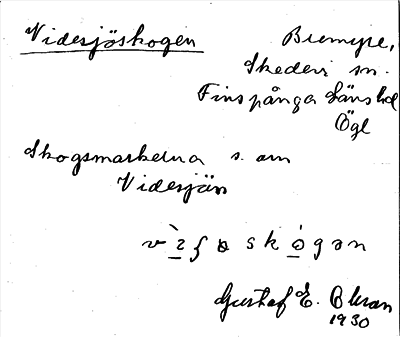 Videsjöskogen
Bremyre,
Skedevi sn.
Finspånga läns hd
Ögl
Skogsmarkerna s. om
Videsjön
Gustaf E.
1930